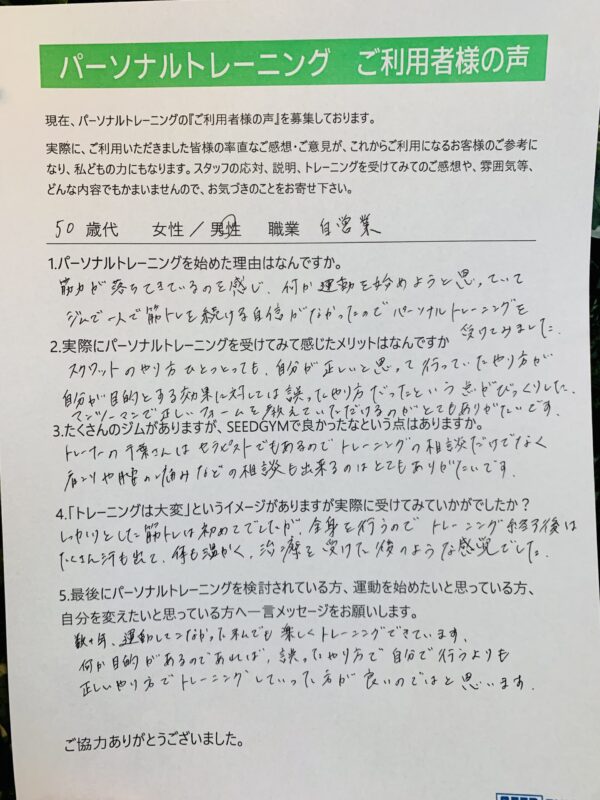 パーソナルトレーニング　ご利用者様の声
現在、パーソナルトレーニングの『ご利用者様の声』を募集しております。
実際に、ご利用いただきました皆様の率直なご感想・ご意見が、これからご利用になるお客様のご参考に
なり、私どもの力にもなります。スタッフの応対、説明、トレーニングを受けてみてのご感想や、雰囲気等、
どんな内容でもかまいませんので、お気づきのことをお寄せ下さい。
50 歳代　女性／男性　職業　自営業
1.パーソナルトレーニングを始めた理由はなんですか。
筋力が落ちてきているのを感じ、何か運動を始めようと思っていて
ジムで一人で筋トレを続ける自信がなかったのでパーソナルトレーニングを
受けてみました.
2.実際にパーソナルトレーニングを受けてみて感じたメリットはなんですか
スクワットのやり方ひとつとっても、自分が正しいと思って行っていたやり方が
自分が目的とする効果に対しては誤ったやり方だったという点がびっくりした.
マンツーマンで正しいフォームを教えていただけるのがとてもありがたいです.
3.たくさんのジムがありますが、SEEDGYMで良かったなという点はありますか。
トレーナーの千葉さんはセラピストでもあるのでトレーニングの相談だけでなく
肩コリや腰の痛みなどの相談も出来るのはとてもありがたいです.
4.「トレーニングは大変」というイメージがありますが実際に受けてみていかがでしたか？
しっかりとした筋トレは初めてでしたが、全身を行うのでトレーニング終了後は
たくさん汗も出て、体も温かく、治療を受けた後のような感覚でした.
5.最後にパーソナルトレーニングを検討されている方、運動を始めたいと思っている方、
自分を変えたいと思っている方へ一言メッセージをお願いします。
数十年、運動してこなかった私でも楽しくトレーニングできています.
何か目的があるのであれば、誤ったやり方で自分で行うよりも
正しいやり方でトレーニングしていった方が良いのではと思います.
ご協力ありがとうございました。